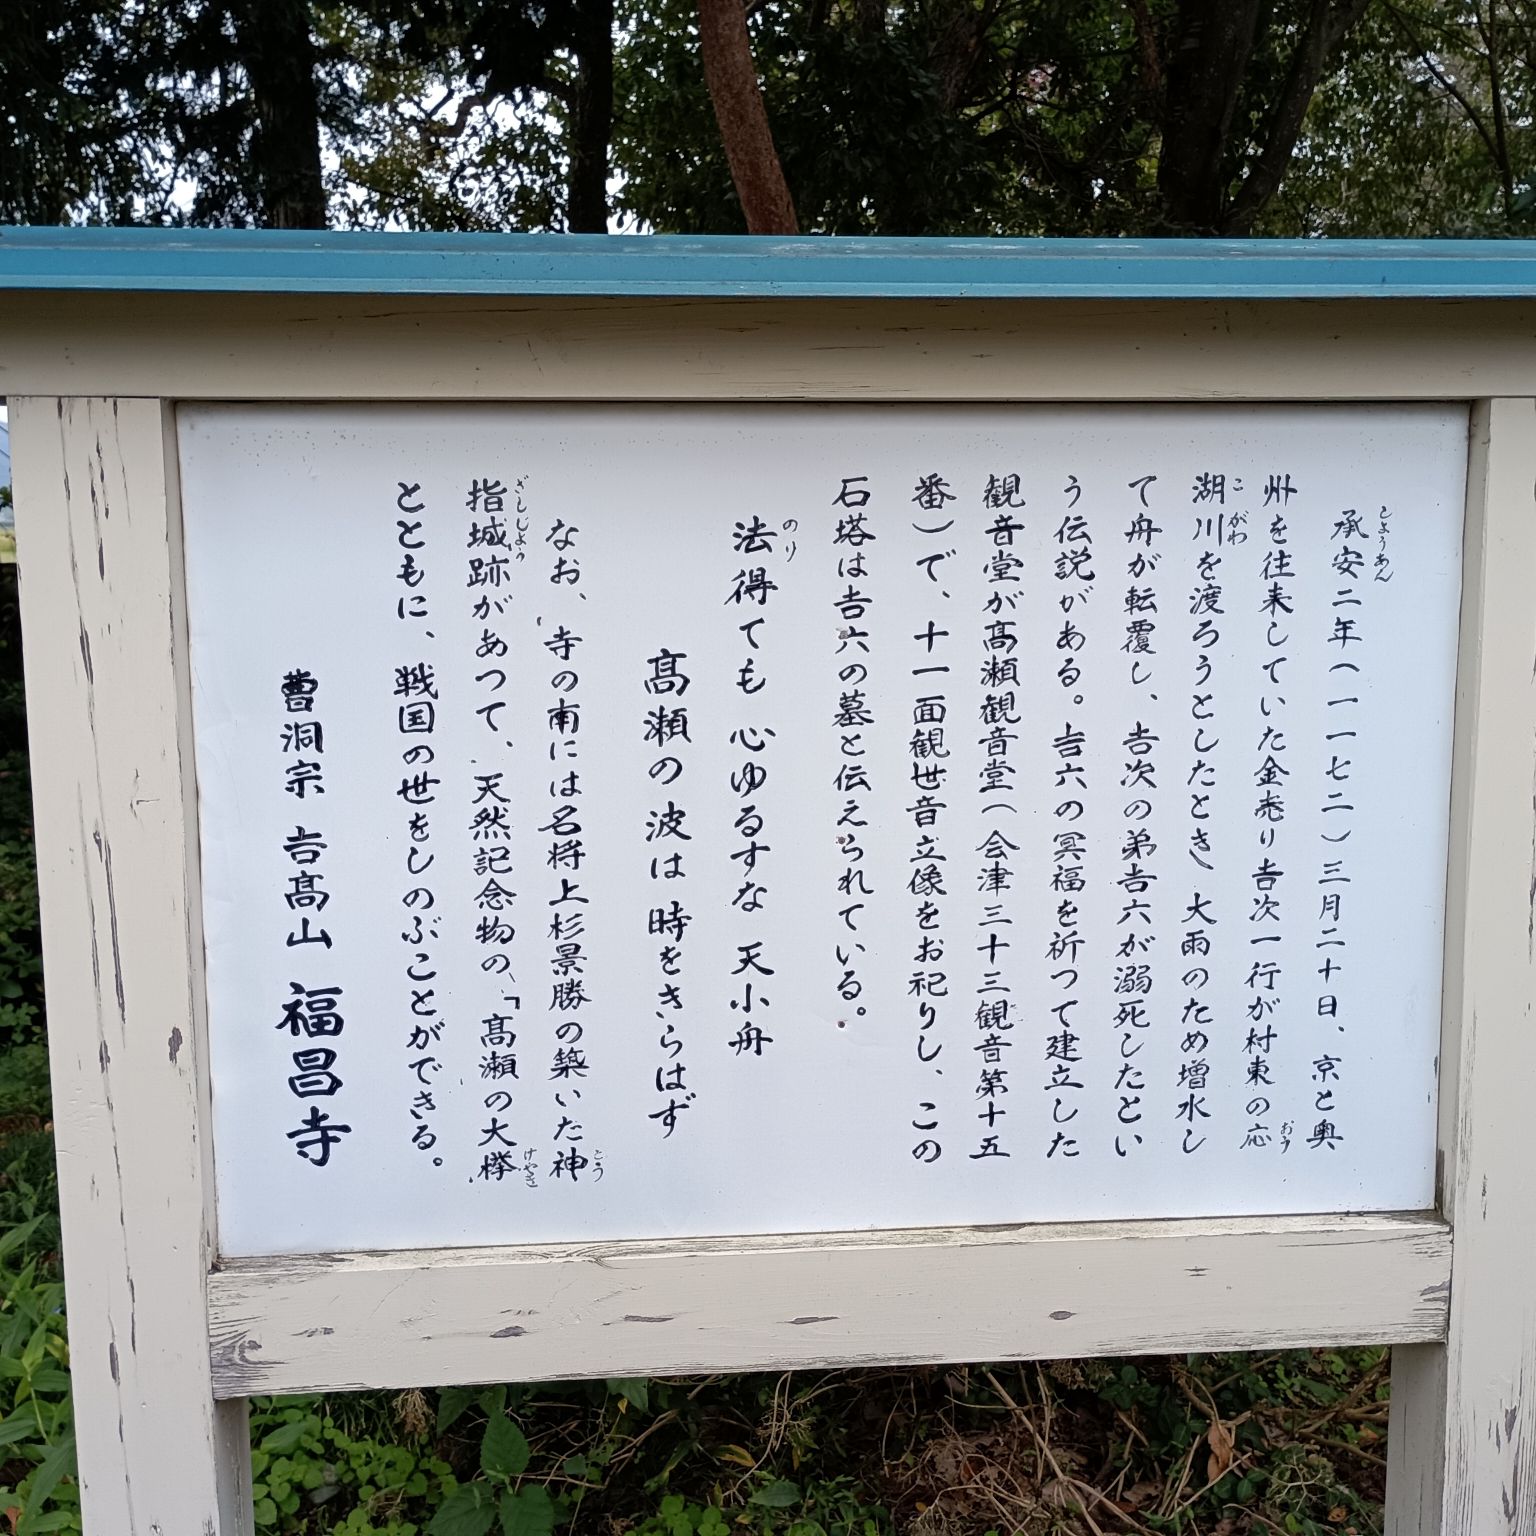 承安二年（一一七二）三月二十日、京と奥
州を往来していた金売り吉次一行が村東の応
湖川を渡ろうとしたとき、大雨のため増水し
て舟が転覆し、吉次の弟吉六が溺死したとい
う伝説がある。吉六の冥福を祈つて建立した
観音堂が髙瀬観音堂（会津三十三観音第十五
番）で、十一面観世音立像をお祀りし、この
石塔は吉六の墓と伝えられている。
法得ても 心ゆるすな 天小舟
髙瀬の波は 時をきらはず
なお、寺の南には名将上杉景勝の築いた神
指城跡があつて、天然記念物の、「髙瀬の大欅
とともに、戦国の世をしのぶことができる。
曹洞宗 吉髙山 福昌寺
しようあん
おう
こ がわ
のり
こう
ざししじよう
けやき